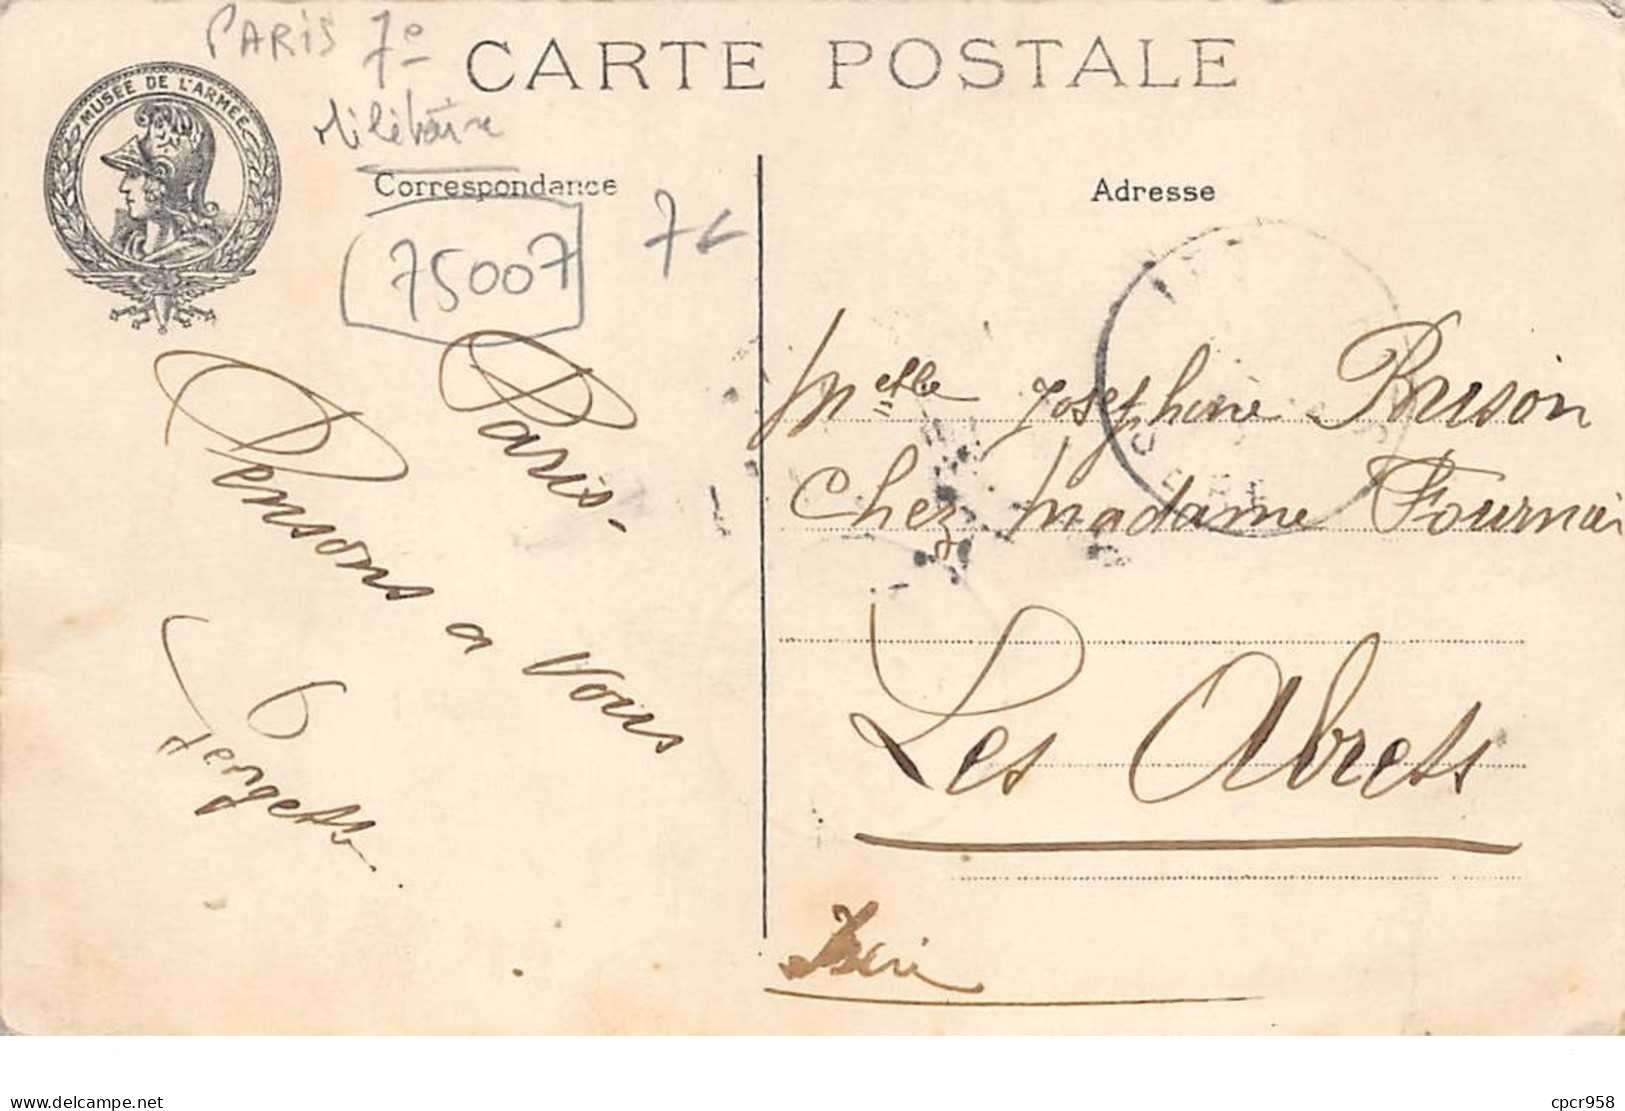 PARIS 7e
Militaire
CARTE POSTALE
MUSÉE DE L'ARMÉE
Correspondance
Adresse
75007
Paris-
Pensons a vous
Melle Josephine Brison
Chez Madame Fournier
Les Abrets
Iseri
delcampe.net
cpcr958